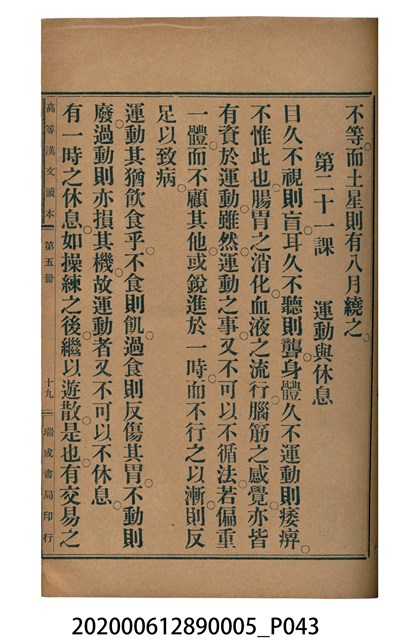 不等。而土星則有八月繞之。
第二十一課　運動與休息
目久不視則盲。耳久不聽則聾。身體久不運動則痿痹。
不惟此也。腸胃之消化。血液之流行。腦筋之感覺。亦皆
有資於運動。雖然。運動之事。又不可以不循法。若偏重
一體。而不顧其他。或銳進於一時。而不行之以漸。則反
足以致病。
運動其猶飲食乎。不食則飢。過食則反傷其胃。不動則
廢。過動則亦損其機。故運動者。又不可以不休息。
有一時之休息。如操練之後。繼以遊散是也。有交易之
高等漢文讀本　第五冊　十九　瑞成書局印行
202000612890005_P043